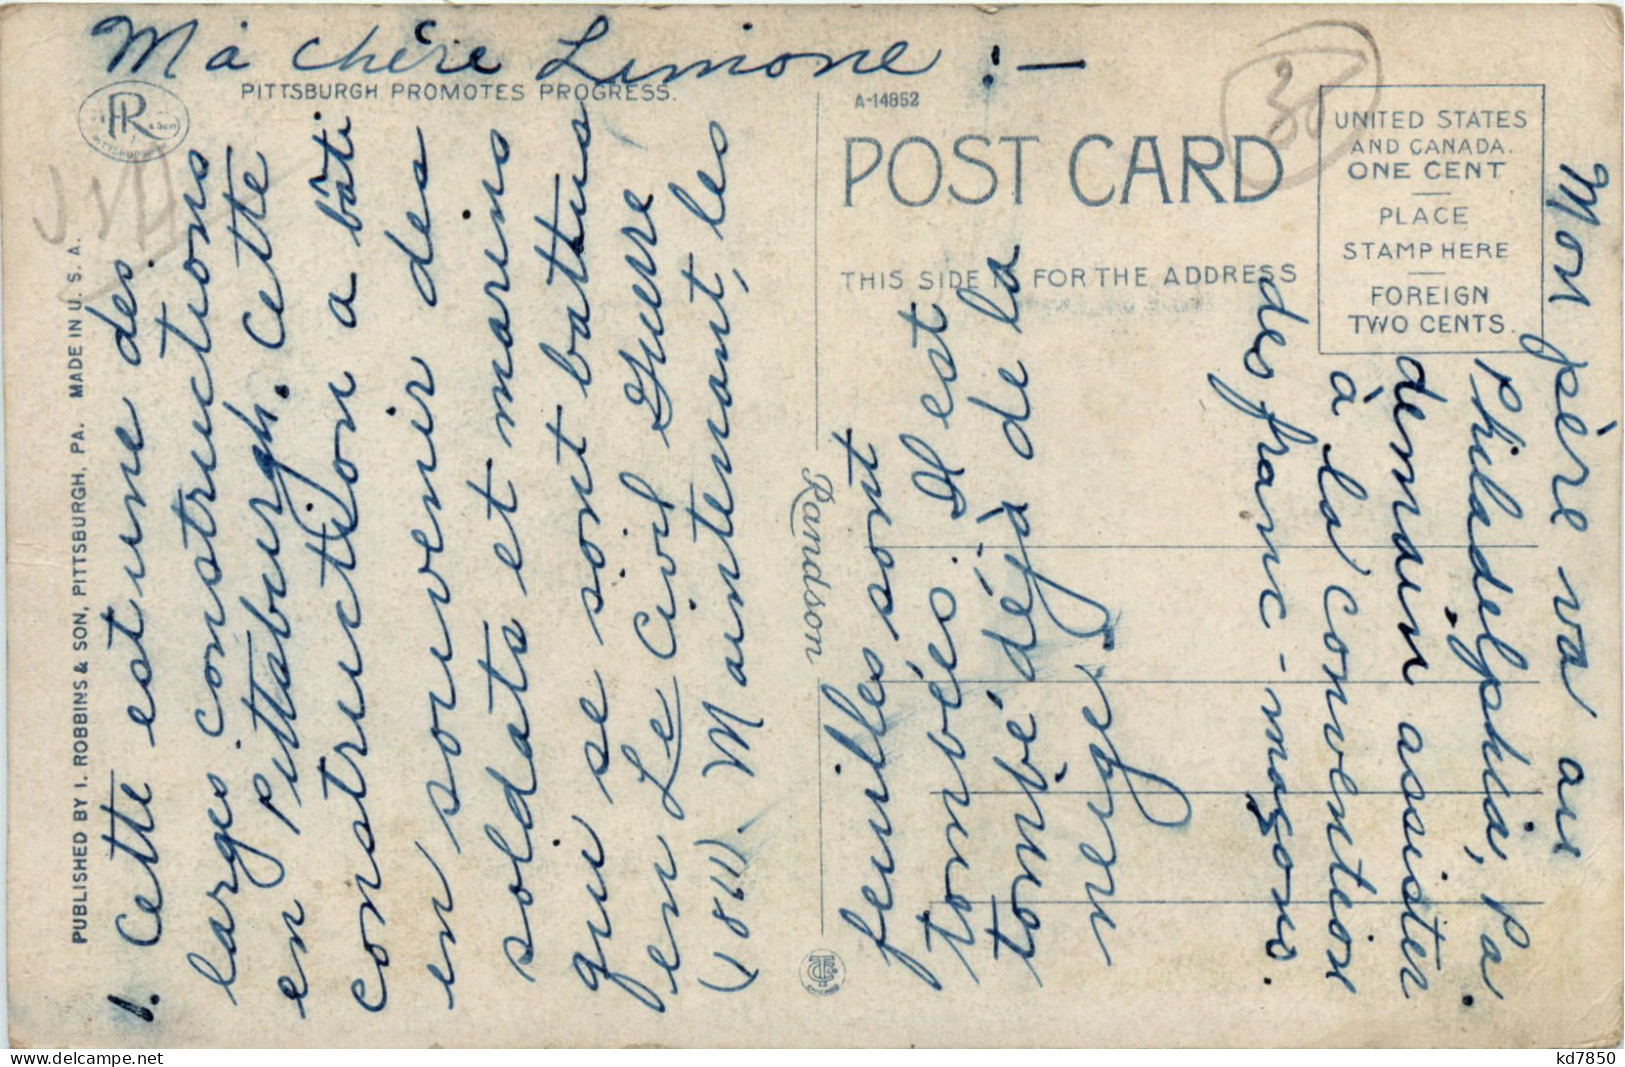 Ma chère Simone :—
PITTSBURGH PROMOTES PROGRESS.
PR
& Son
PITTSBURGH
PUBLISHED BY I. ROBBINS & SON, PITTSBURGH, PA. MADE IN U. S. A.
1. Cette est une des
larges constructions
en Pittsburgh. Cette
construction a bâti
en souvenir des
soldats et marins
qui se sont battus
en Le Civil Guerre
(1811). Maintenant, les
Randson
A-14852
POST CARD
THIS SIDE IS FOR THE ADDRESS
UNITED STATES
AND CANADA.
ONE CENT
PLACE
STAMP HERE
FOREIGN
TWO CENTS.
30
feuilles sont
tombés. Il est
tombé déjà de la
neige.
Mon père va au
Philadelphia, Pa.
demain assister
à la convention
des franc-maçons.
kd7850